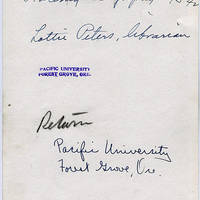 Lottie Peters, librarian
PACIFIC UNIVERSITY
FOREST GROVE, ORE.
Return
Pacific University
Forest Grove, Ore.